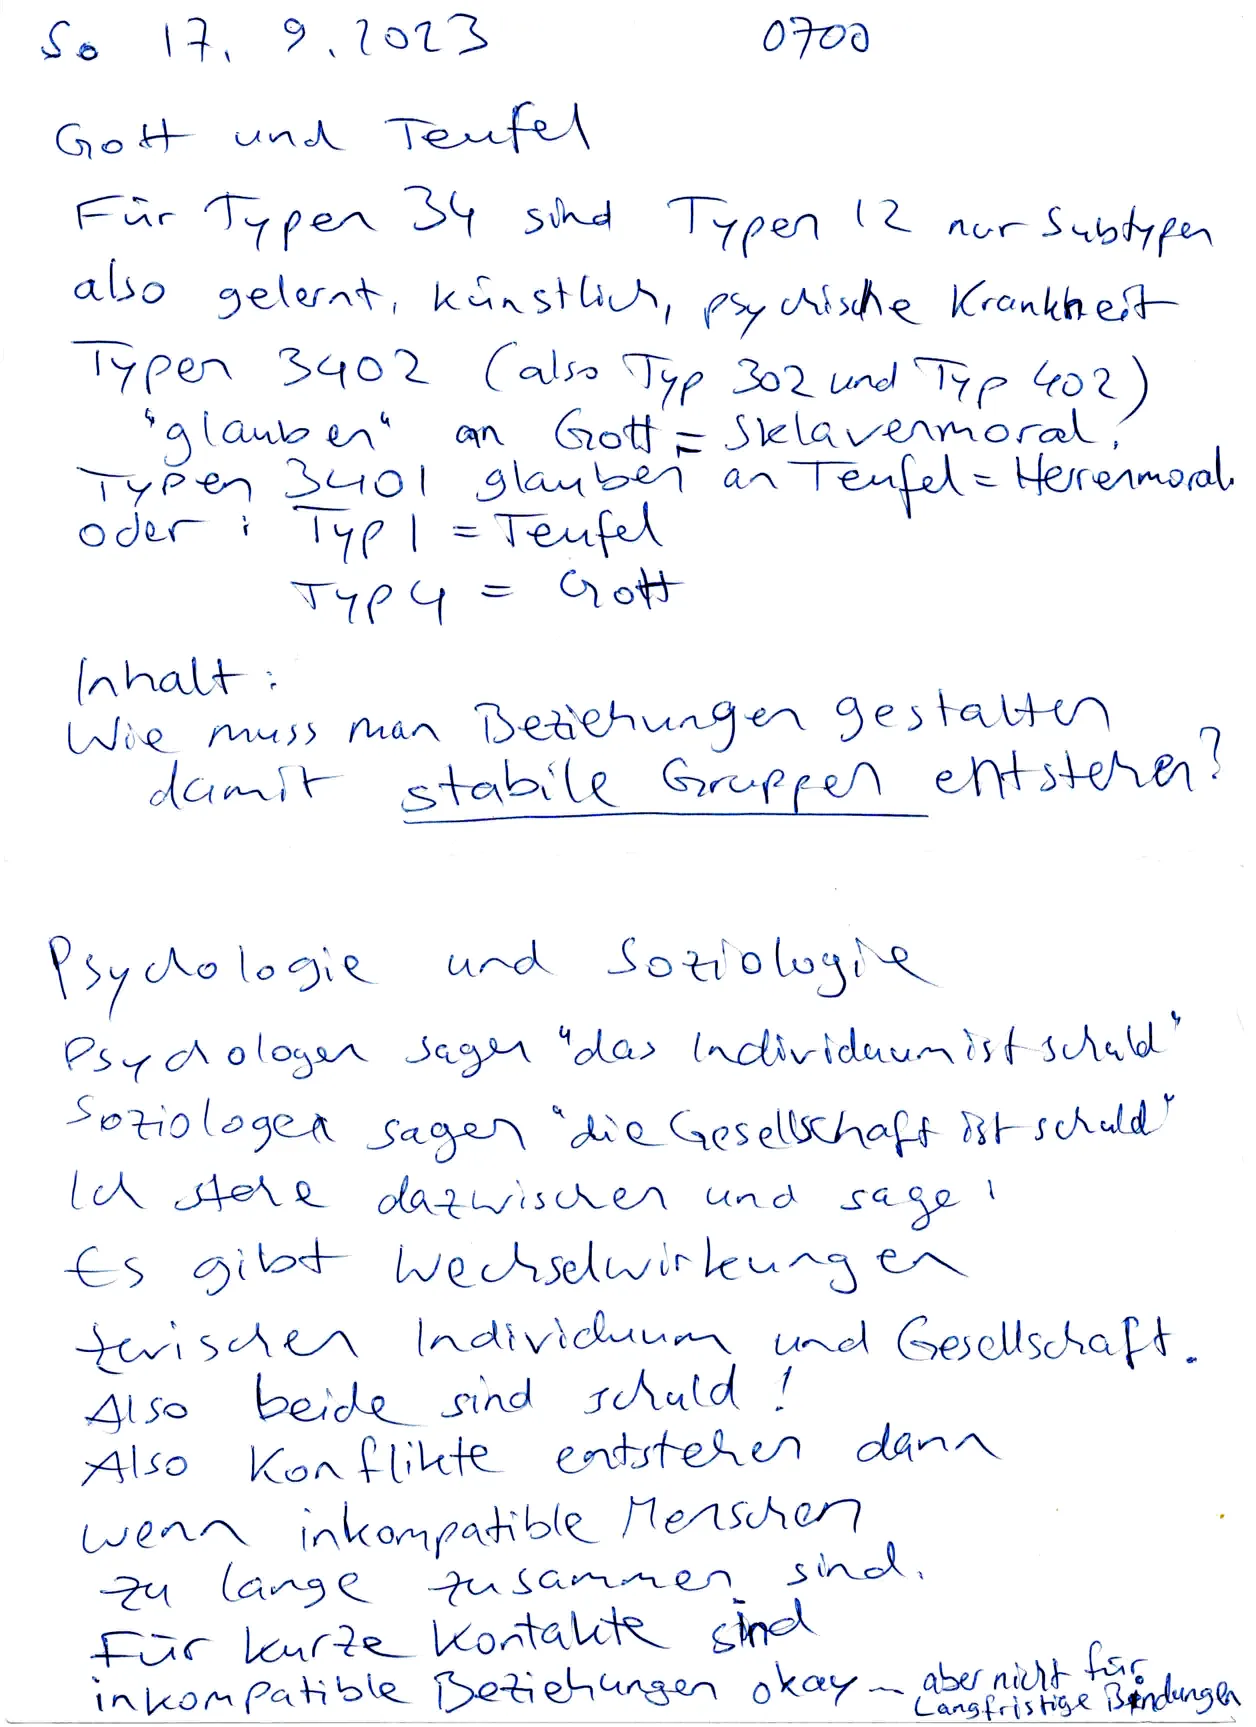 So 17. 9. 2023 0700
Gott und Teufel
Für Typen 34 sind Typen 12 nur Subtypen
also gelernt, künstlich, psychische Krankheit
Typen 3402 (also Typ 302 und Typ 402)
"glauben" an Gott = Sklavenmoral.
Typen 3401 glauben an Teufel = Herrenmoral.
oder: Typ 1 = Teufel
Typ 4 = Gott
Inhalt:
Wie muss man Beziehungen gestalten
damit stabile Gruppen entstehen?
Psychologie und Soziologie
Psychologen sagen "das Individuum ist schuld"
Soziologen sagen "die Gesellschaft ist schuld"
Ich stehe dazwischen und sage:
Es gibt Wechselwirkungen
zwischen Individuum und Gesellschaft.
Also beide sind schuld!
Also Konflikte entstehen dann
wenn inkompatible Menschen
zu lange zusammen sind.
Für kurze Kontakte sind
inkompatible Beziehungen okay – aber nicht für
Langfristige Bindungen